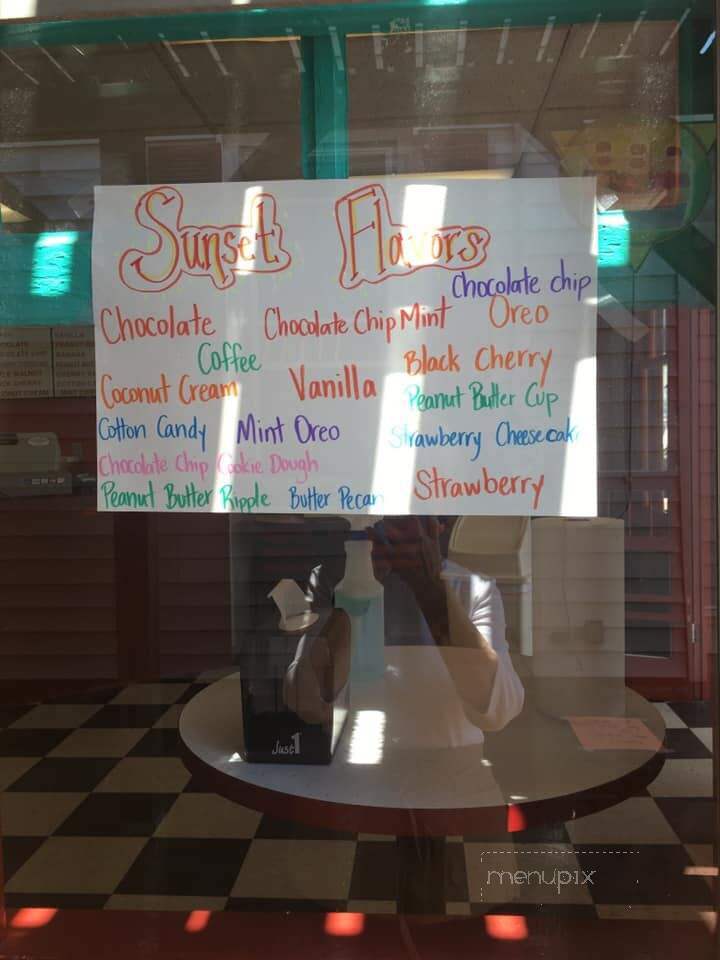 Sunset Flavors
Chocolate chip
Chocolate Chocolate Chip Mint Oreo
Coffee Black Cherry
Coconut Cream Vanilla Peanut Butter Cup
Cotton Candy Mint Oreo Strawberry Cheesecake
Chocolate Chip Cookie Dough
Peanut Butter Ripple Butter Pecan Strawberry
Just1
menupix